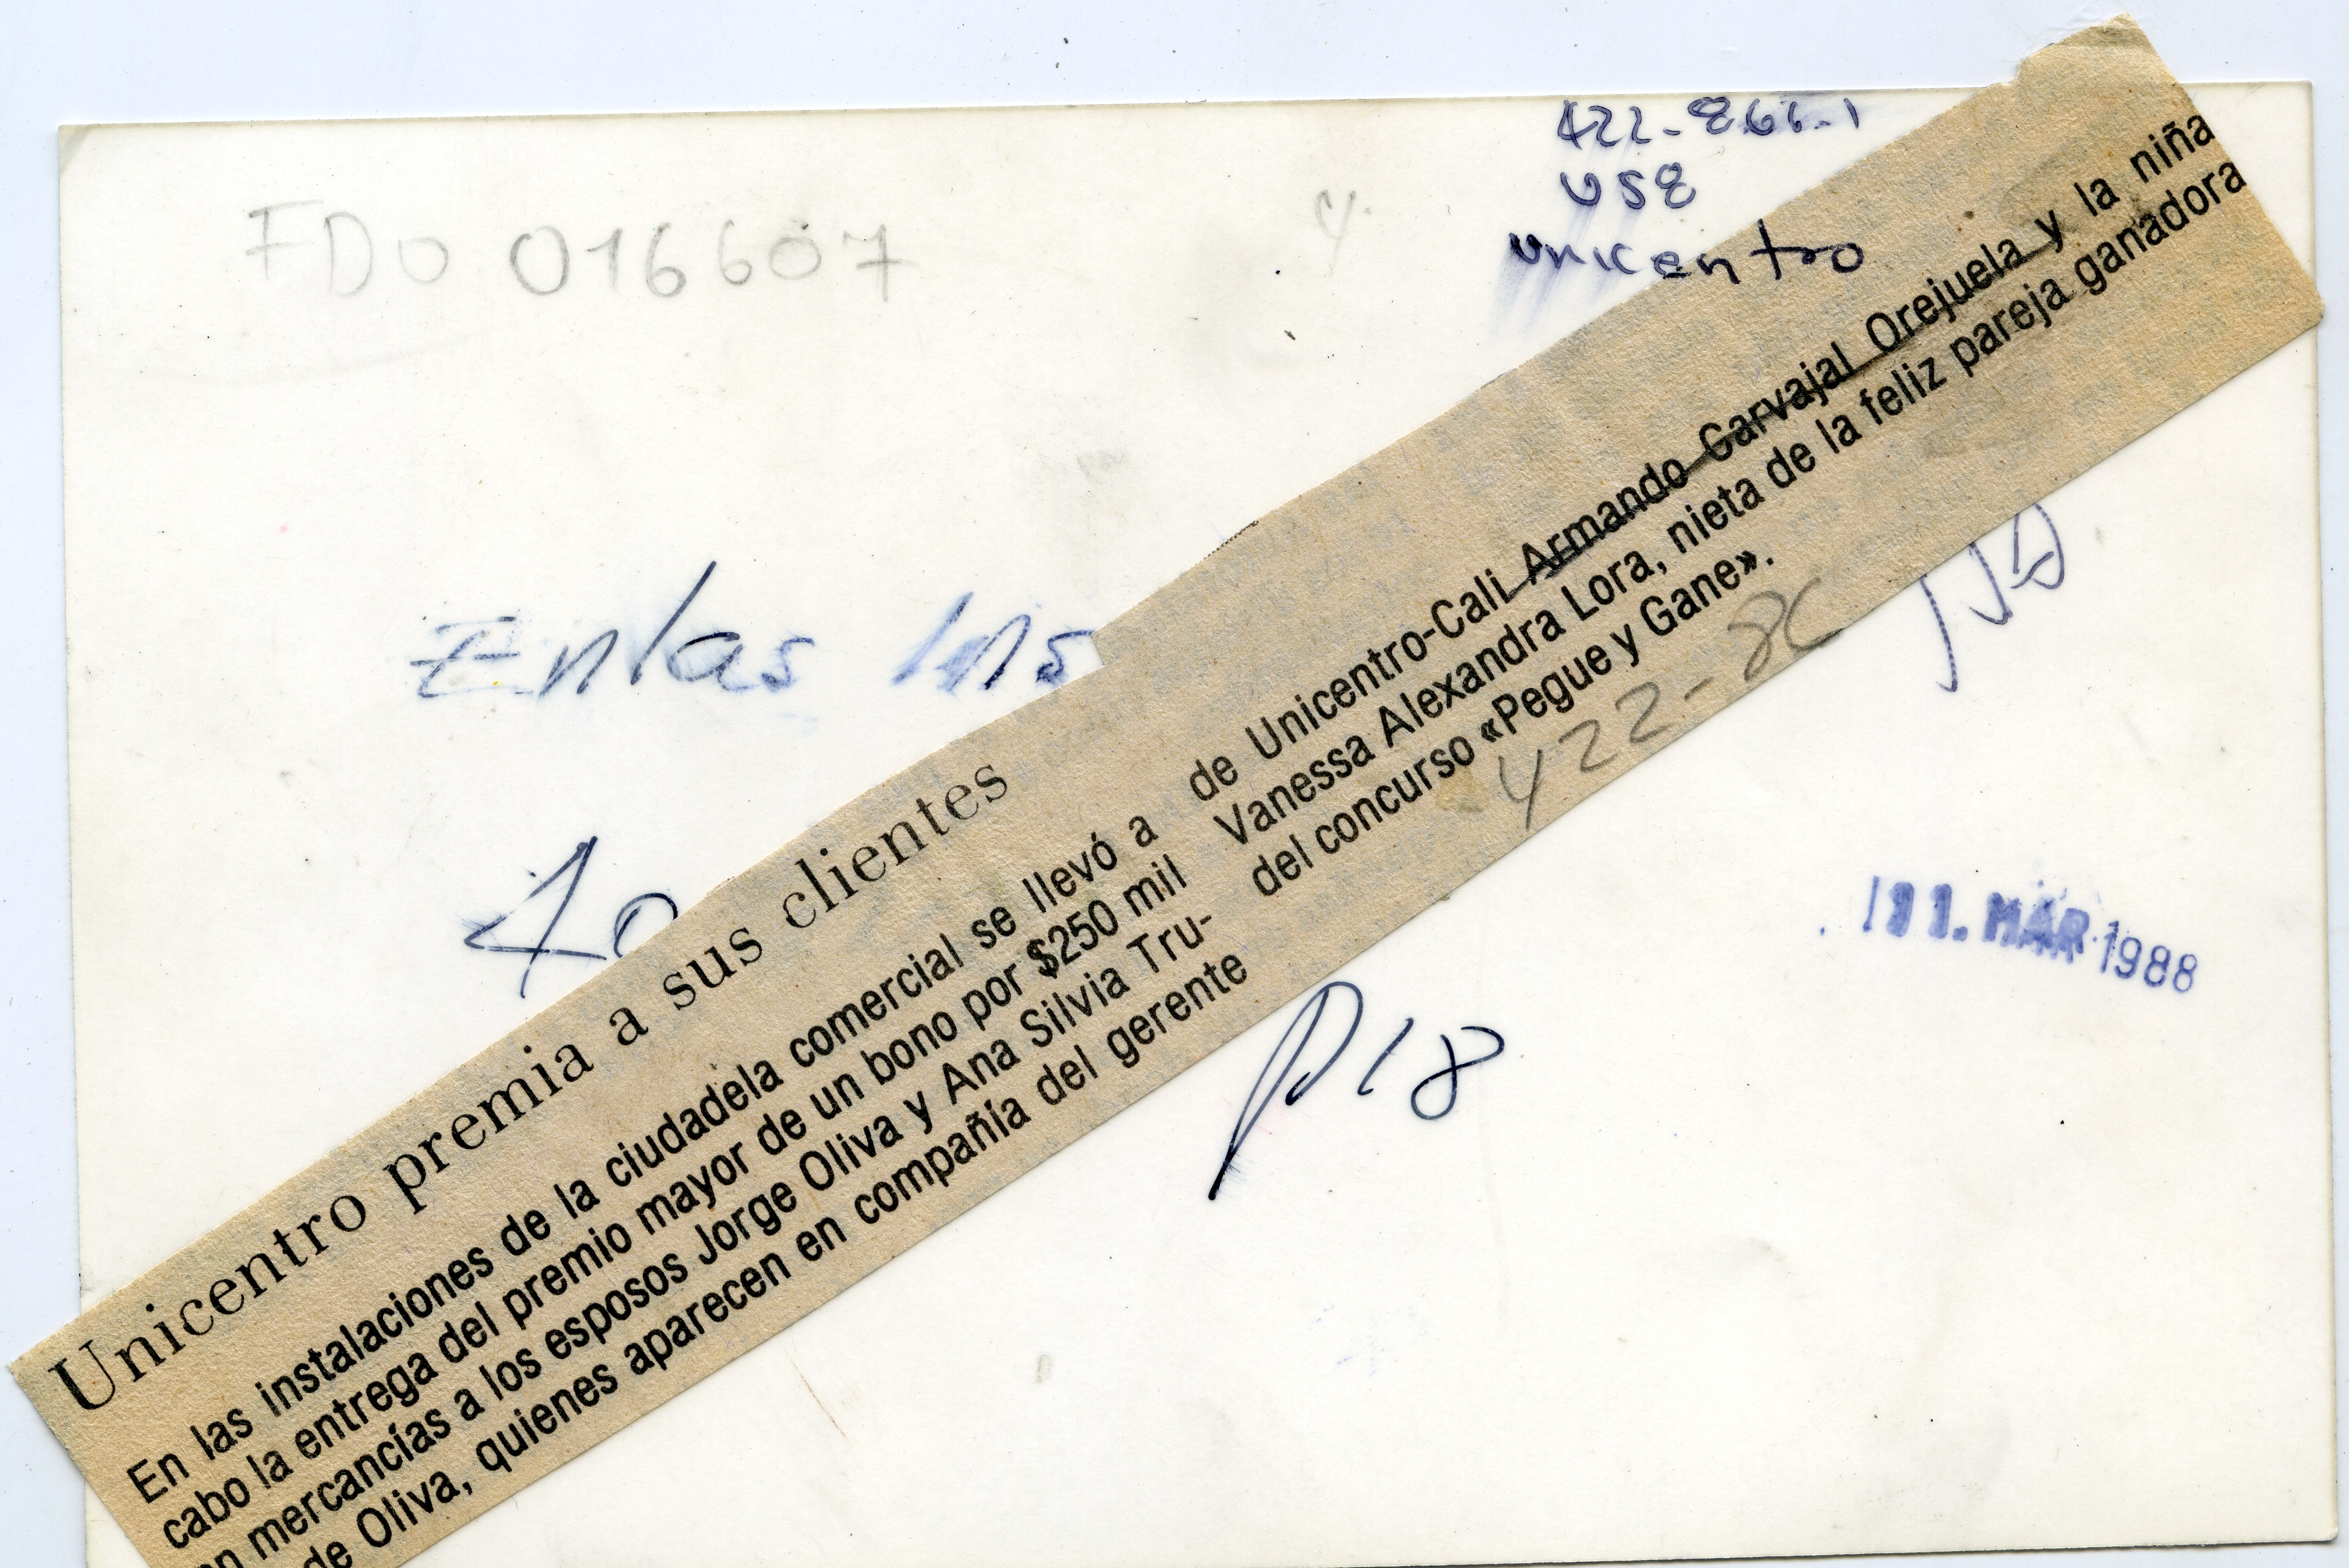 422-866-1
USE
unicentro
FDO 016607
En las Ins
Unicentro premia a sus clientes
En las instalaciones de la ciudadela comercial se llevó a
cabo la entrega del premio mayor de un bono por $250 mil
en mercancías a los esposos Jorge Oliva y Ana Silvia Tru-
de Oliva, quienes aparecen en compañía del gerente
de Unicentro-Cali Armando Carvajal Orejuela y la niña
Vanessa Alexandra Lora, nieta de la feliz pareja ganadora
del concurso «Pegue y Gane».
422-86
11. MAR 1988
P18